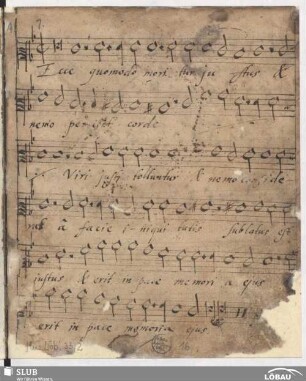 Ecce quomodo mori tur ju stus &
nemo percipit corde
Viri justi tolluntur & nemo conside
rat à facie i niqui tatis sublatus est
justus & erit in pace memori a ejus
erit in pace memoria ejus
SLUB
Wir führen Wissen.
LÖBAU